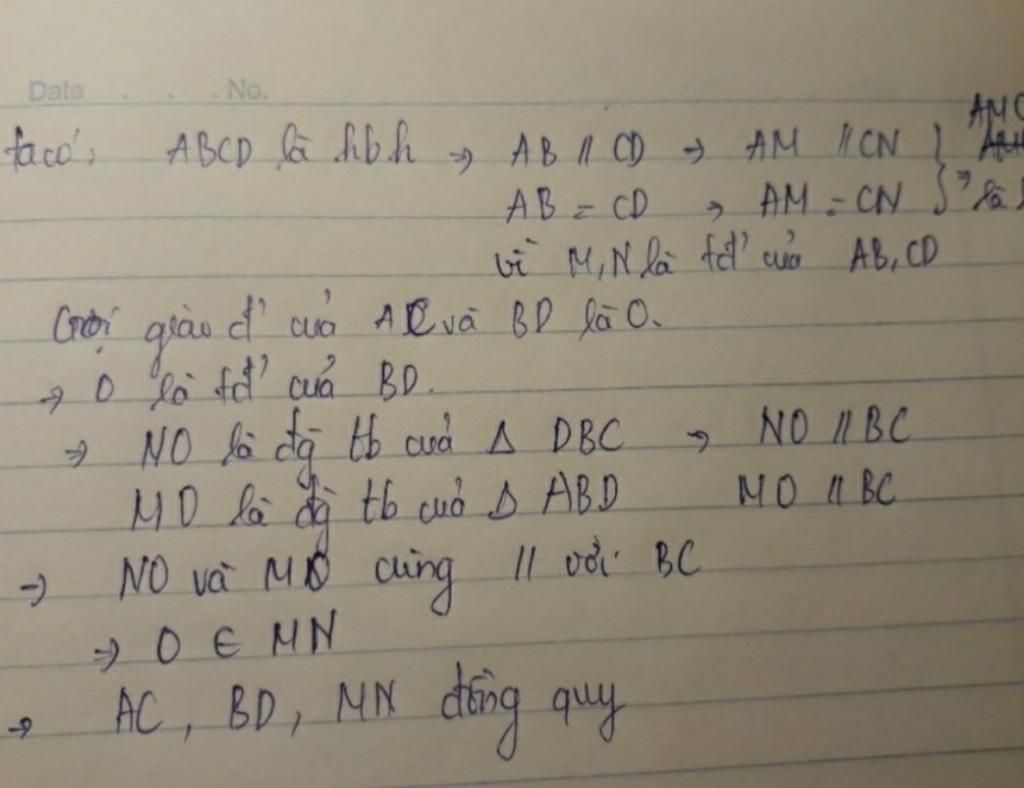 Date . . . No.
ta có, ABCD là hbh → AB // CD → AM // CN } AMC
AB = CD → AM = CN } → là
vì M, N là tđ' của AB, CD
Gọi giao đ' của AC và BD là O.
→ O là tđ' của BD.
→ NO là đg tb của Δ DBC → NO // BC
MO là đg tb của Δ ABD MO // BC
→ NO và MO cùng // với BC
→ O ∈ MN
→ AC, BD, MN đồng quy